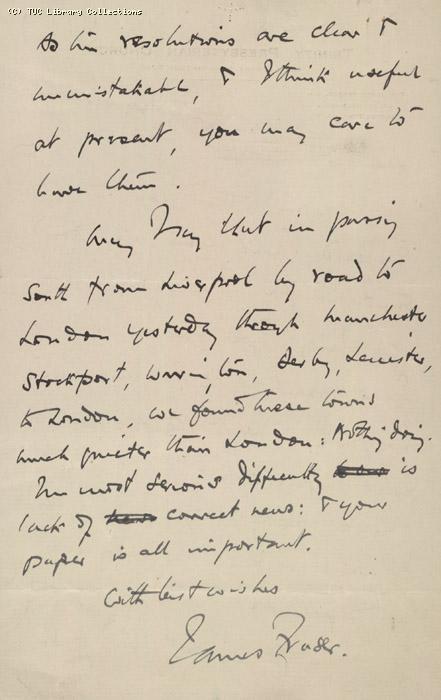 (C) TUC Library Collections
As his resolutions are clear &
unmistakable, & I think useful
at present, you may care to
have them.
May I say that in passing
South from Liverpool by road to
London yesterday through Manchester
Stockport, Warrington, Derby, Leicester,
to London, we found these towns
much quieter than London: Nothing doing.
The most serious difficulty is
lack of correct news: & your
paper is all important.
With best wishes
James Fraser.